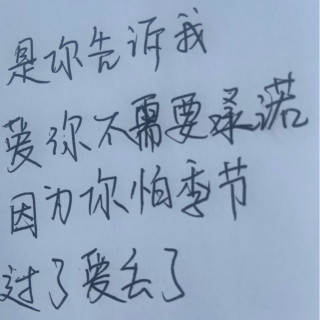 是你告诉我
爱你不需要承诺
因为你怕季节
过了爱丢了